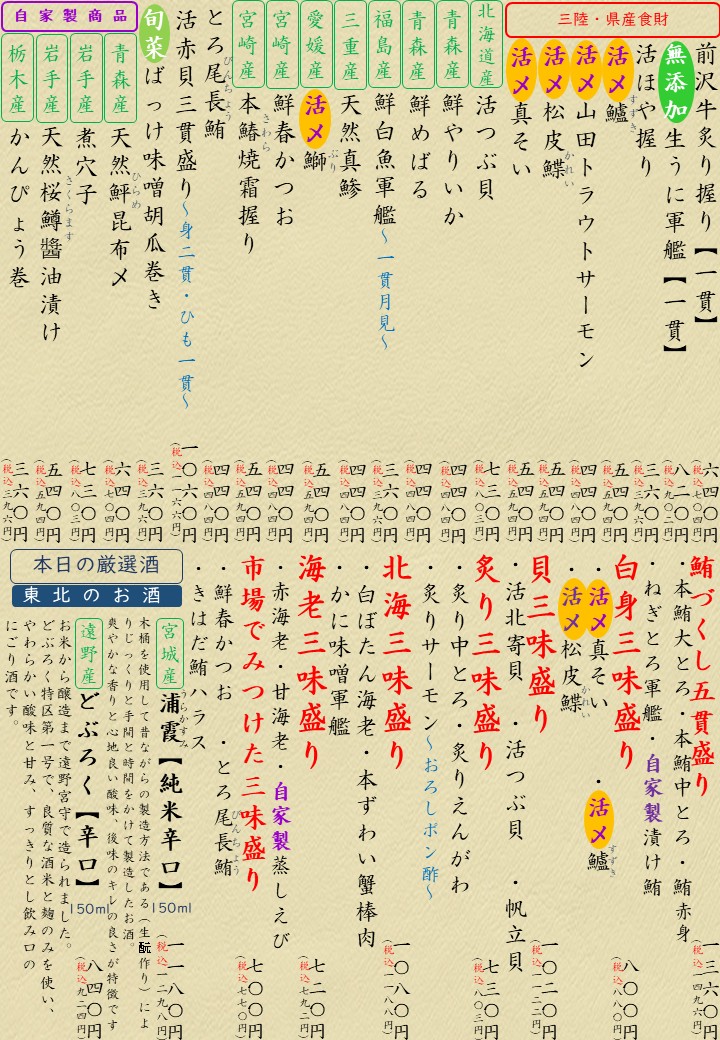 三陸・県産食財
前沢牛炙り握り【一貫】
六四〇円
(税込七〇四円)
無添加生うに軍艦【一貫】
八二〇円
(税込九〇二円)
活ほや握り
三六〇円
(税込三九六円)
活〆鱸
すずき
五四〇円
(税込五九四円)
活〆山田トラウトサーモン
四四〇円
(税込四八四円)
活〆松皮鰈
かれい
五四〇円
(税込五九四円)
活〆真そい
五四〇円
(税込五九四円)
北海道産
活つぶ貝
七三〇円
(税込八〇三円)
青森産
鮮やりいか
四四〇円
(税込四八四円)
青森産
鮮めばる
四四〇円
(税込四八四円)
福島産
鮮白魚軍艦～一貫月見～
三六〇円
(税込三九六円)
三重産
天然真鯵
四四〇円
(税込四八四円)
愛媛産
活〆鰤
ぶり
五四〇円
(税込五九四円)
宮崎産
鮮春かつお
四四〇円
(税込四八四円)
宮崎産
本鰆焼霜握り
さわら
五四〇円
(税込五九四円)
とろ尾長鮪
びんちょう
四四〇円
(税込四八四円)
活赤貝三貫盛り～身二貫・ひも一貫～
一〇六〇円
(税込一一六六円)
旬菜ばっけ味噌胡瓜巻き
三六〇円
(税込三九六円)
自家製商品
青森産
天然鮃昆布〆
ひらめ
六四〇円
(税込七〇四円)
岩手産
煮穴子
七三〇円
(税込八〇三円)
岩手産
天然桜鱒醤油漬け
さくらます
五四〇円
(税込五九四円)
栃木産
かんぴょう巻
三六〇円
(税込三九六円)
鮪づくし五貫盛り
・本鮪大とろ・本鮪中とろ・鮪赤身
・ねぎとろ軍艦・自家製漬け鮪
一三六〇円
(税込一四九六円)
白身三味盛り
・活〆真そい ・活〆鱸
すずき
・活〆松皮鰈
かれい
八〇〇円
(税込八八〇円)
貝三味盛り
・活北寄貝 ・活つぶ貝 ・帆立貝
一〇二〇円
(税込一一二二円)
炙り三味盛り
・炙り中とろ・炙りえんがわ
・炙りサーモン～おろしポン酢～
七三〇円
(税込八〇三円)
北海三味盛り
・白ぼたん海老・本ずわい蟹棒肉
・かに味噌軍艦
一〇八〇円
(税込一一八八円)
海老三味盛り
・赤海老・甘海老・自家製蒸しえび
七二〇円
(税込七九二円)
市場でみつけた三味盛り
・鮮春かつお ・とろ尾長鮪
びんちょう
・きはだ鮪ハラス
七〇〇円
(税込七七〇円)
本日の厳選酒
東北のお酒
宮城産
浦霞【純米辛口】
うらかすみ
150ml
一一八〇円
(税込一二九八円)
木桶を使用して昔ながらの製造方法である(生酛作り)によ
りじっくりと手間と時間をかけて製造したお酒。
爽やかな香りと心地良い酸味、後味のキレの良さが特徴です
遠野産
どぶろく【辛口】
150ml
八四〇円
(税込九二四円)
お米から醸造まで遠野宮守で造られました。
どぶろく特区第一号で、良質な酒米と麹のみを使い、
やわらかい酸味と甘み、すっきりとし飲み口の
にごり酒です。